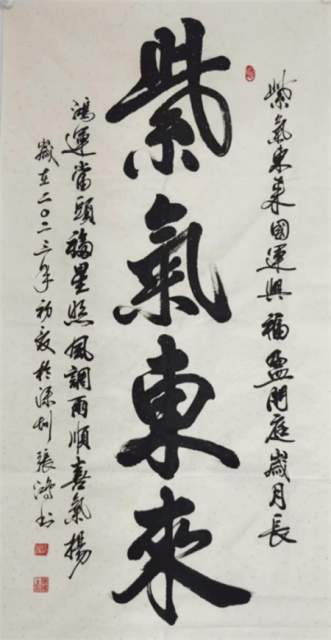 紫氣東來國運興福盈門庭歲月長
紫氣東來
鴻運當頭福星照風調雨順喜氣揚
歲在二〇二三年初夏於深圳張鴻書